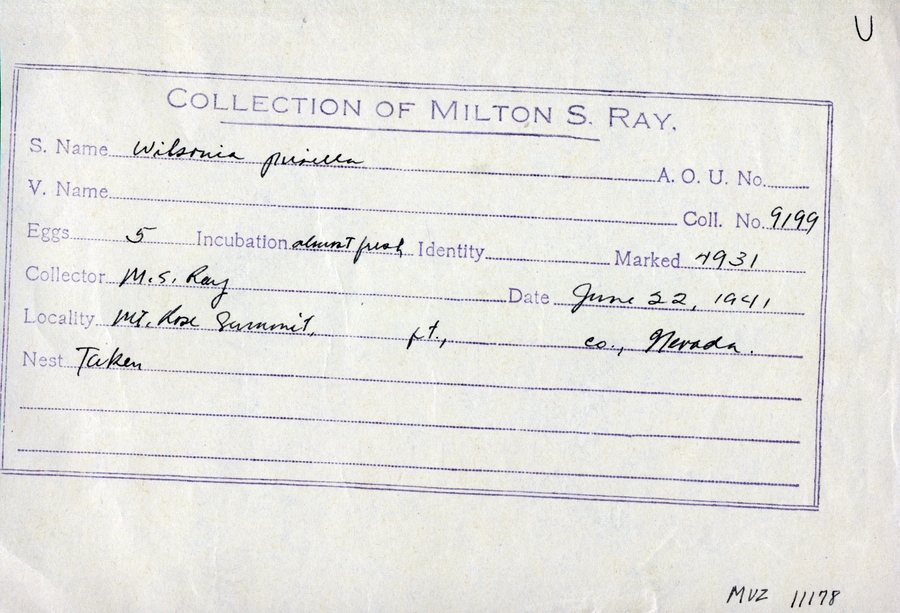 U
COLLECTION OF MILTON S. RAY.
S. Name Wilsonia pusilla A. O. U. No.
V. Name Coll. No. 9199
Eggs 5 Incubation almost fresh Identity Marked 4931
Collector M. S. Ray Date June 22, 1941
Locality Mt. Rose Summit, ft., co., Nevada.
Nest Taken
MVZ 11178